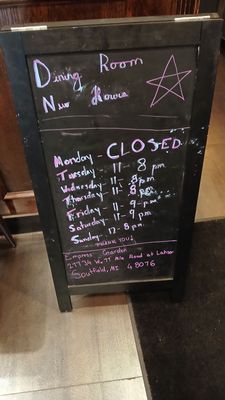 Dining Room
New Hours
Monday - CLOSED
Tuesday - 11 - 8 pm
Wednesday - 11 - 8pm
Thursday - 11 - 8pm
Friday - 11 - 9 pm
Saturday - 11 - 9 pm
Sunday - 12 - 8pm.
THANK YOU!
Empress Garden
W. 9 Mile Road at Lahser
Southfield, MI 48076